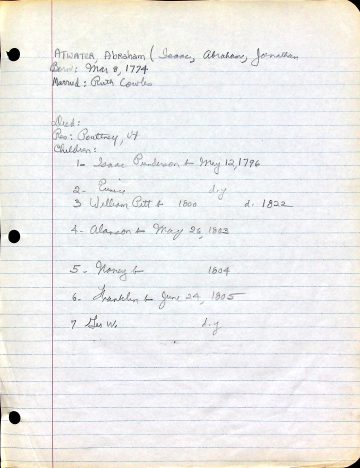 ATWATER, Abraham (Isaac, Abraham, Jonathan
Born: Mar 8, 1774
Married: Ruth Cowles
Died:
Res: Poultney, Vt
Children:
1- Isaac Punderson b May 12, 1796
2- Eunice d.y
3 William Pitt b 1800 d. 1822
4- Alanson b May 26, 1803
5- Nancy b 1804
6- Franklin b June 24, 1805
7 Geo W. d.y